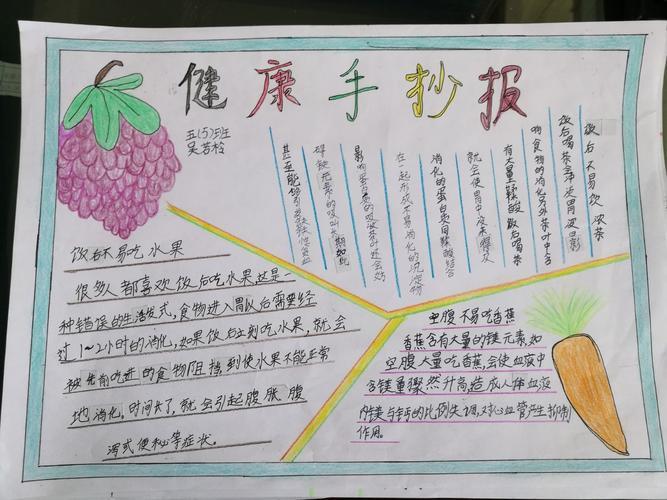 健康手抄报
五(5)班
吴若
饭后不易饮浓茶
饭后喝茶会冲淡胃液影
响食物的消化另外茶叶中含
有大量鞣酸饭后喝茶
就会使胃中没来得及
消化的蛋白质同鞣酸结合
在一起形成不易消化的沉淀物
影响蛋白质的吸收茶叶还会妨
碍铁元素的吸收长期如此
甚至能够引发缺铁性贫血
饭后不易吃水果
很多人都喜欢饭后吃水果这是一
种错误的生活方式,食物进入胃以后需要经
过1~2小时的消化,如果饭后立刻吃水果,就会
被先前吃进的食物阻挡到使水果不能正常
地消化。时间长了,就会引起腹胀腹
泻或便秘等症状。
空腹不易吃香蕉
香蕉含有大量的镁元素如
空腹大量吃香蕉,会使血液中
含镁量骤然升高造成人体血液
内镁与钙的比例失调,对心血管产生抑制
作用。